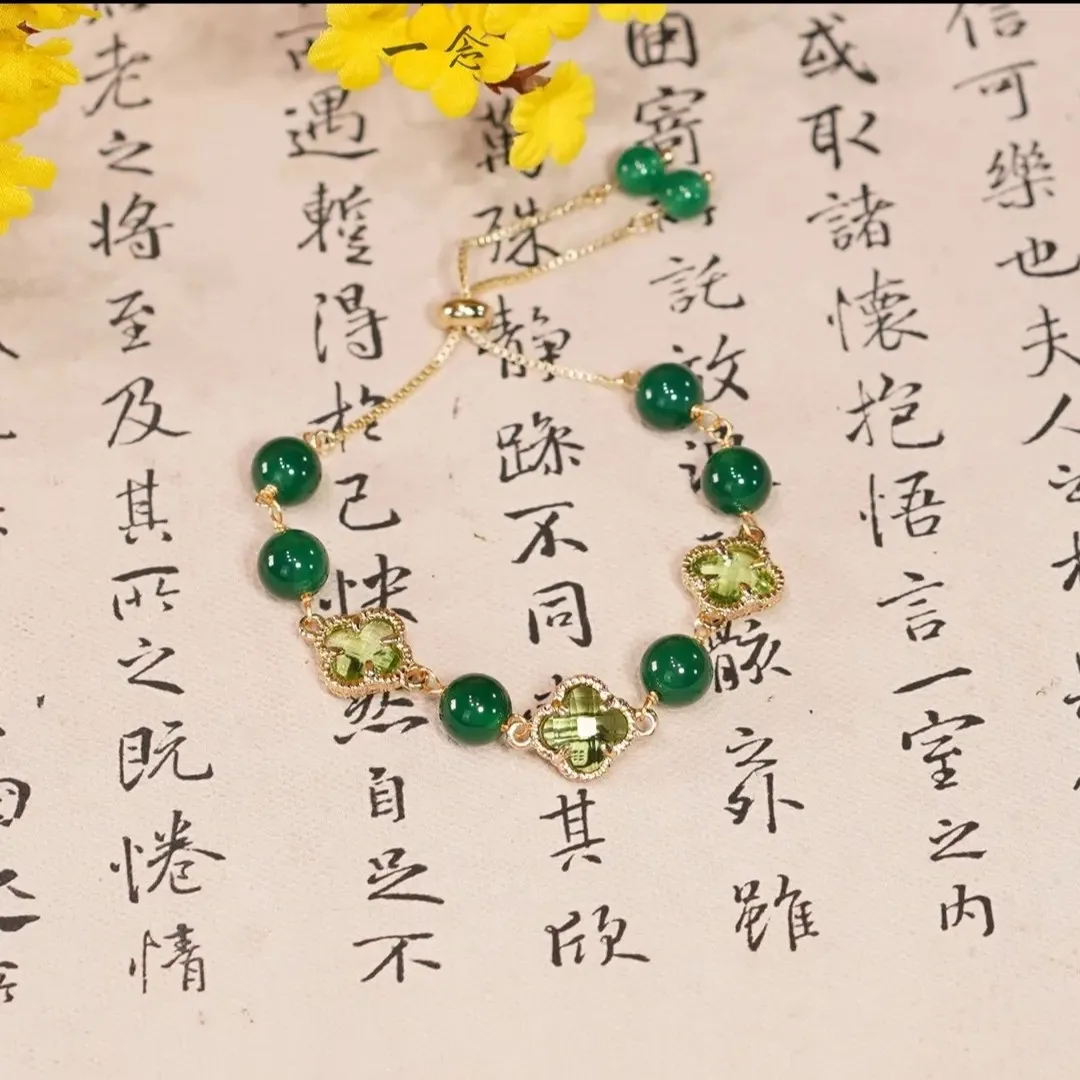 一念
信可樂也夫人
或取諸懷抱悟言一室之内
因寄託放骸之外雖
萬殊静躁不同其欣
遇暫得於己快然自足不
老之将至及其所之既惓情